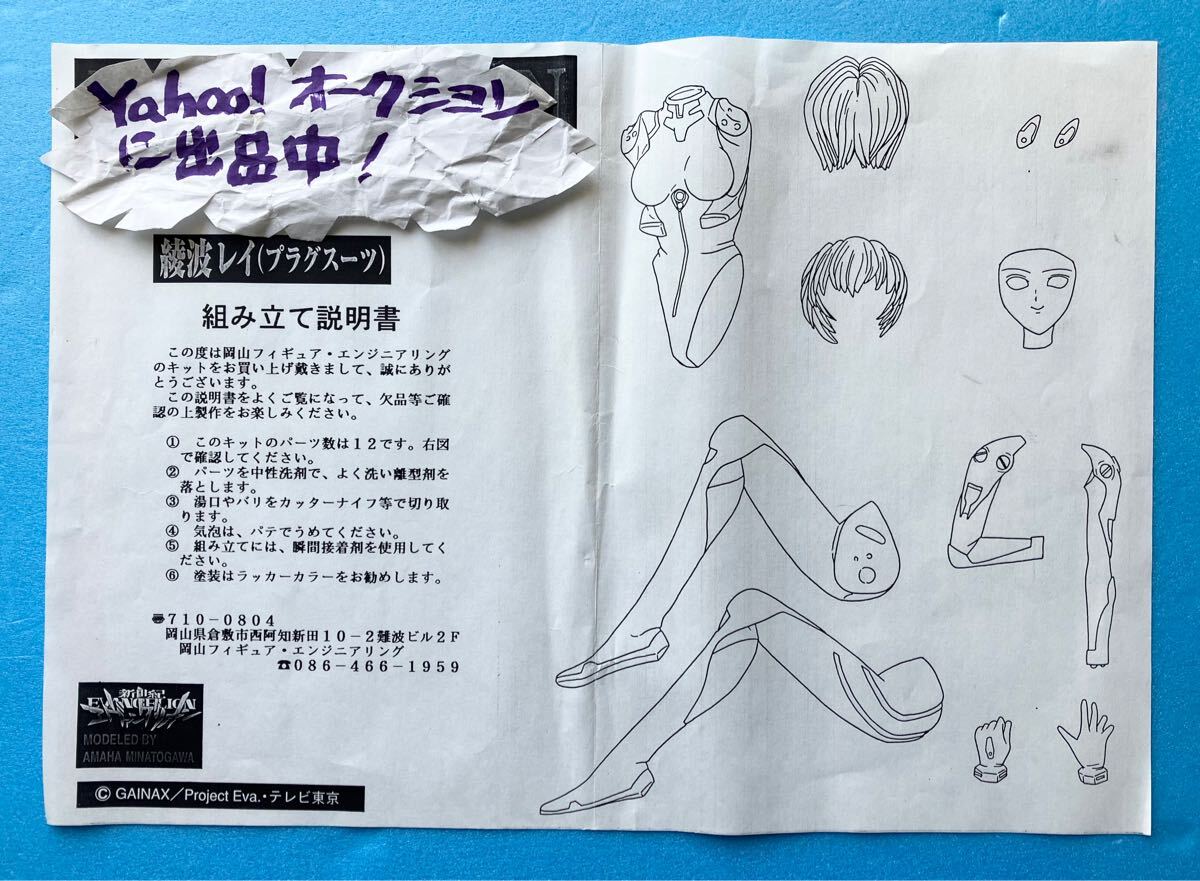 Yahoo! オークション
に出品中!
綾波レイ(プラグスーツ)
組み立て説明書
この度は岡山フィギュア・エンジニアリング
のキットをお買い上げ戴きまして、誠にありが
とうございます。
この説明書をよくご覧になって、欠品等ご確
認の上製作をお楽しみください。
① このキットのパーツ数は12です。右図
で確認してください。
② パーツを中性洗剤で、よく洗い離型剤を
落とします。
③ 湯口やバリをカッターナイフ等で切り取
ります。
④ 気泡は、パテでうめてください。
⑤ 組み立てには、瞬間接着剤を使用してく
ださい。
⑥ 塗装はラッカーカラーをお勧めします。
710-0804
岡山県倉敷市西阿知新田10-2難波ビル2F
岡山フィギュア・エンジニアリング
☎086-466-1959
新世紀
EVANGELION
エヴァンゲリオン
MODELED BY
AMAHA MINATOGAWA
© GAINAX/Project Eva.・テレビ東京